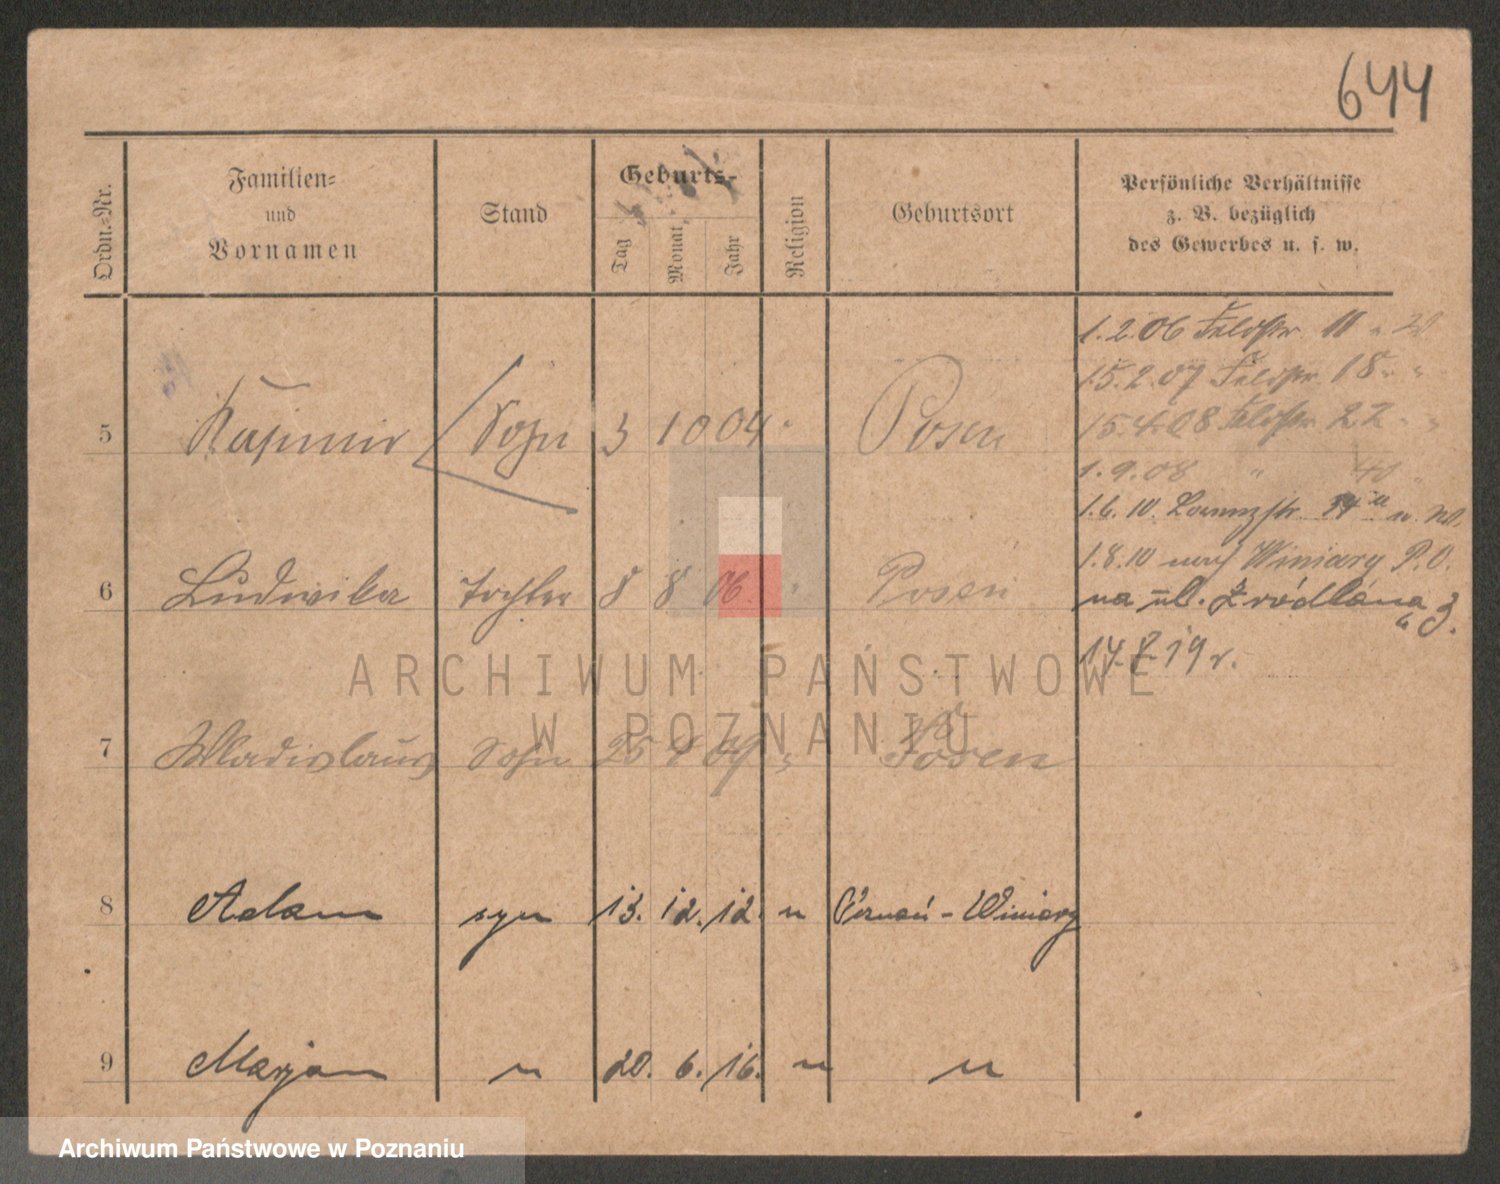 644
Ordn.-Nr.
Familien-
und
Vornamen
Stand
Geburts-
Tag
Monat
Jahr
Religion
Geburtsort
Persönliche Verhältnisse
z. B. bezüglich
des Gewerbes u. s. w.
1.2.06 Feldstr. 11
15.2.07 Feldstr. 18 " "
15.4.08 Feldstr. 22 " "
5 Kasimir Sohn 3 10 04 " Posen
1.9.08 "
1.6.10.
1.8.10 nach Winiary P.O.
6 Ludwika Tochter 8 8 06 " Posen
na ul. Źródlana 3.
17. 19 r.
ARCHIWUM PAŃSTWOWE
W POZNANIU
7 Wladislaus Sohn 25 4 09 " Posen
8 Adam syn 13. 12. 12. " Poznań - Winiary
9 Marjan " 20. 6. 16. " "
Archiwum Państwowe w Poznaniu